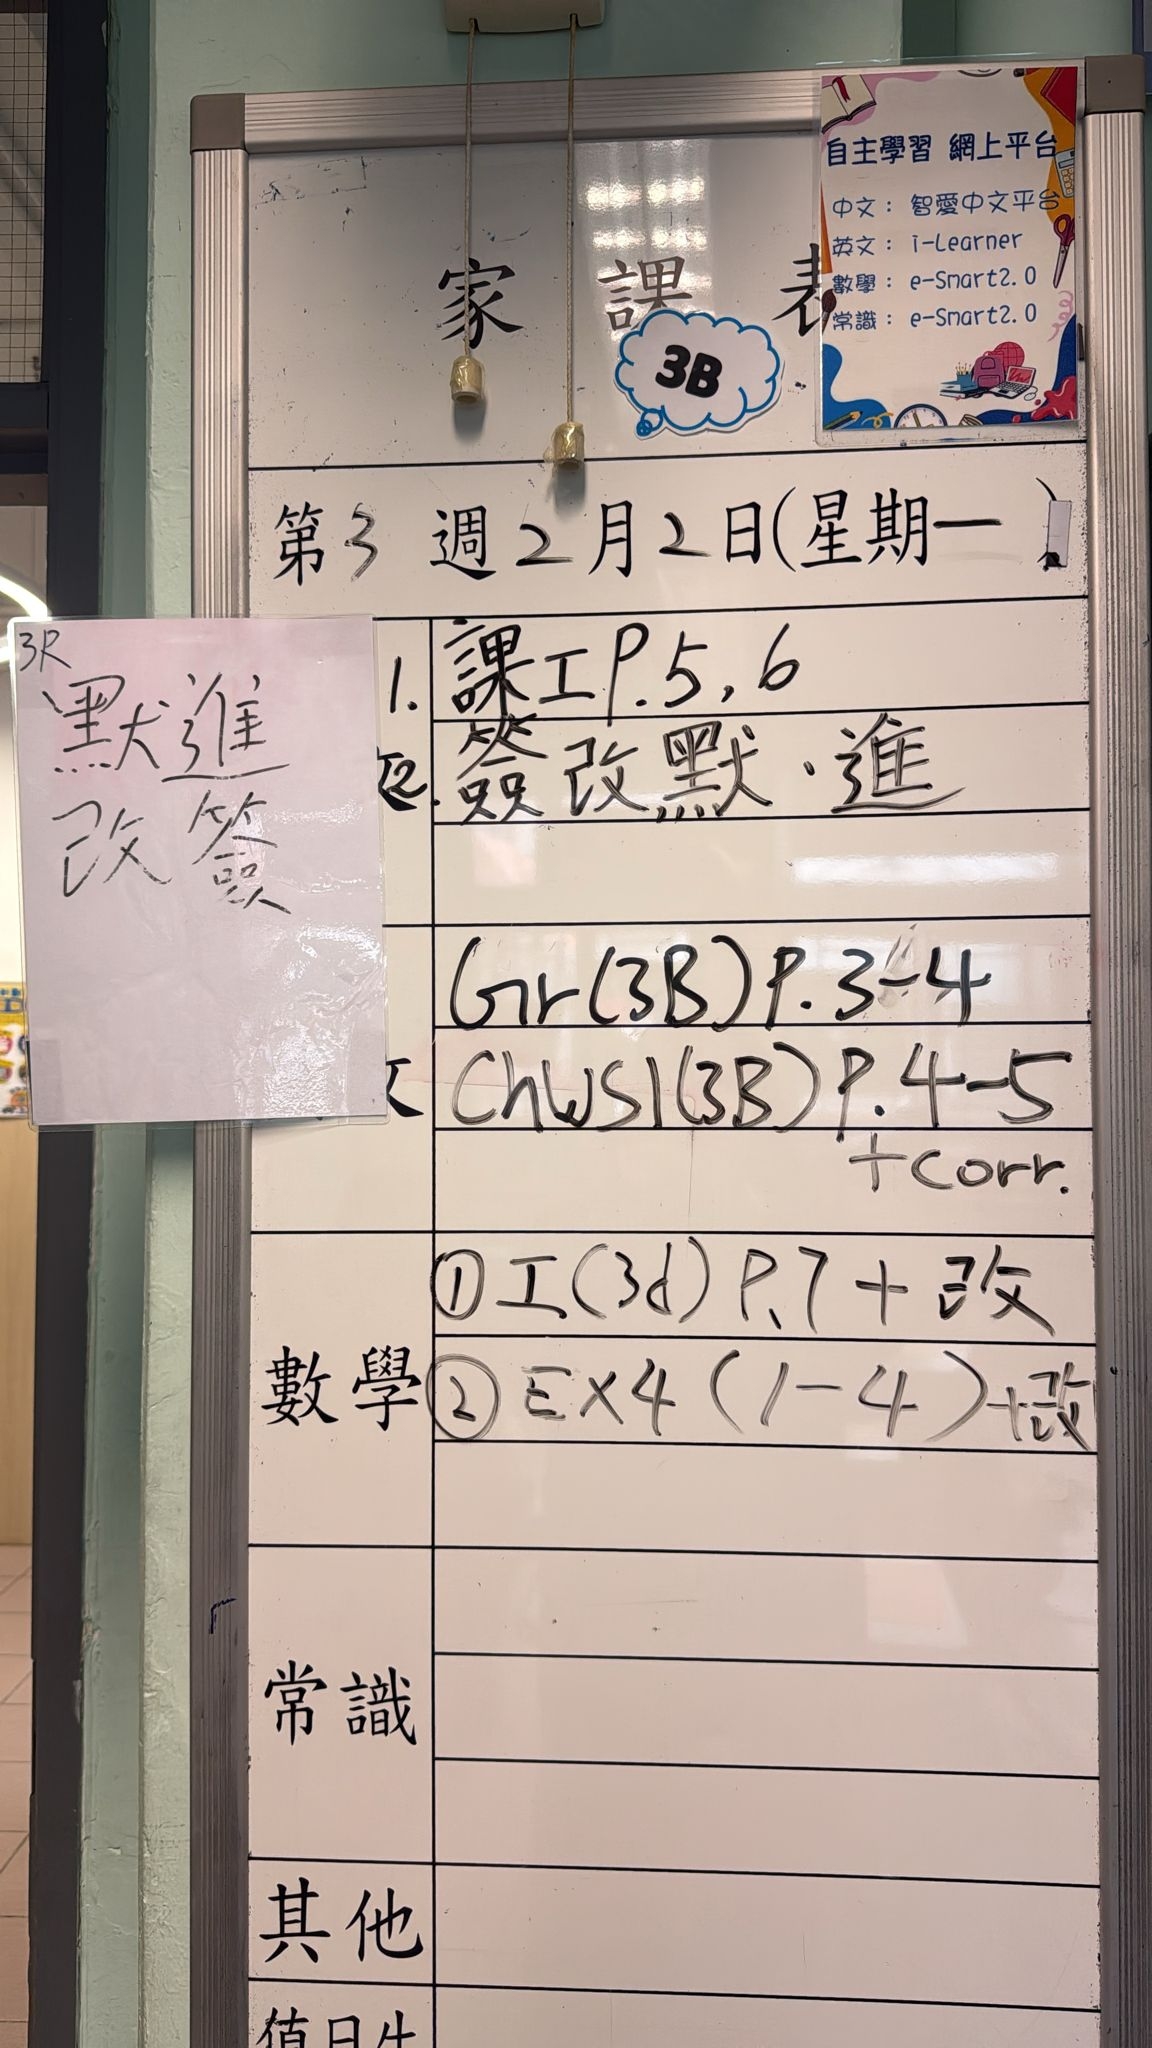 自主學習 網上平台
中文： 智愛中文平台
英文： i-Learner
數學： e-Smart2.0
常識： e-Smart2.0
家課表
3B
第3週2月2日(星期一)
3R
默進
改簽
1. 課工P.5,6
2. 簽改默.進
文
Gr(3B)P.3-4
ChWS1(3B)P.4-5
+corr.
數學
①工(3d)P.7+改
②Ex4(1-4)+改
常識
其他
值日生